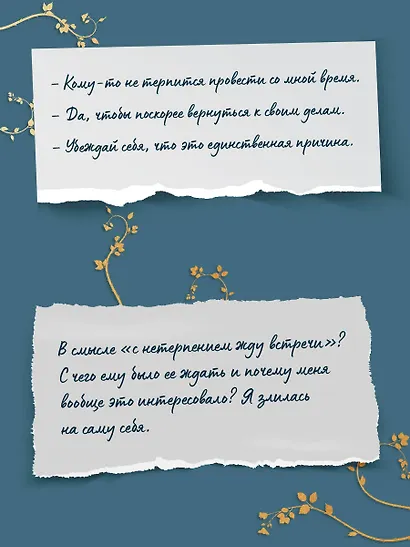 – Кому-то не терпится провести со мной время.
– Да, чтобы поскорее вернуться к своим делам.
– Убеждай себя, что это единственная причина.
В смысле «с нетерпением жду встречи»?
С чего ему было ее ждать и почему меня
вообще это интересовало? Я злилась
на саму себя.